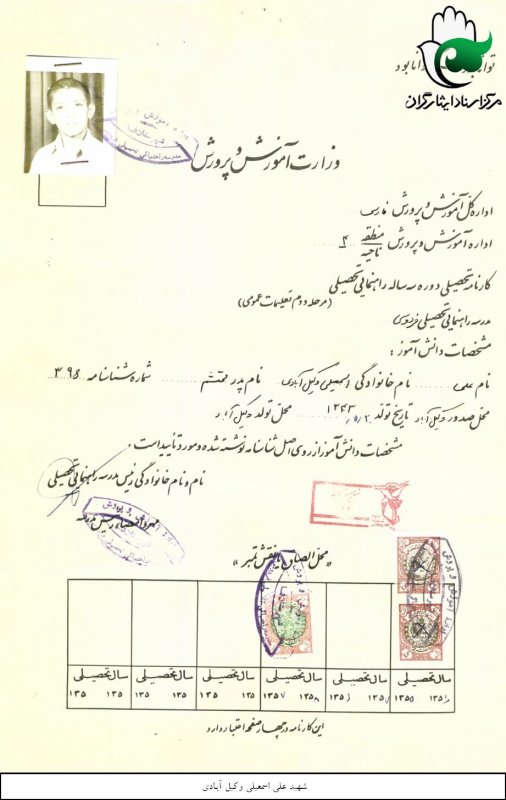 توانا بود
مرکز اسناد ایثارگران
وزارت آموزش و پرورش
اداره کل آموزش و پرورش فارس
اداره آموزش و پرورش منطقه ناحیه ۴
کارنامه تحصیلی دوره سه ساله راهنمایی تحصیلی
(مرحله دوم تعلیمات عمومی)
مدرسه راهنمایی تحصیلی فردوسی
مشخصات دانش آموز :
نام علی نام خانوادگی اسمعیلی وکیل آبادی نام پدر محتشم شماره شناسنامه ۳۹۶
محل صدور وکیل آباد تاریخ تولد ۱۳۴۳ محل تولد وکیل آباد
مشخصات دانش آموز از روی اصل شناسنامه نوشته شده و مورد تایید است .
نام و نام خانوادگی رئیس مدرسه راهنمایی تحصیلی
« محل الصاق یا نقش تمبر »
سال تحصیلی سال تحصیلی سال تحصیلی سال تحصیلی سال تحصیلی سال تحصیلی
۱۳۵ ۱۳۵ ۱۳۵ ۱۳۵ ۱۳۵ ۱۳۵ ۱۳۵۷ ۱۳۵۸ ۱۳۵۶ ۱۳۵ ۱۳۵۵ ۱۳۵
این کارنامه در چهار صفحه اعتبار دارد
شهید علی اسمعیلی وکیل آبادی